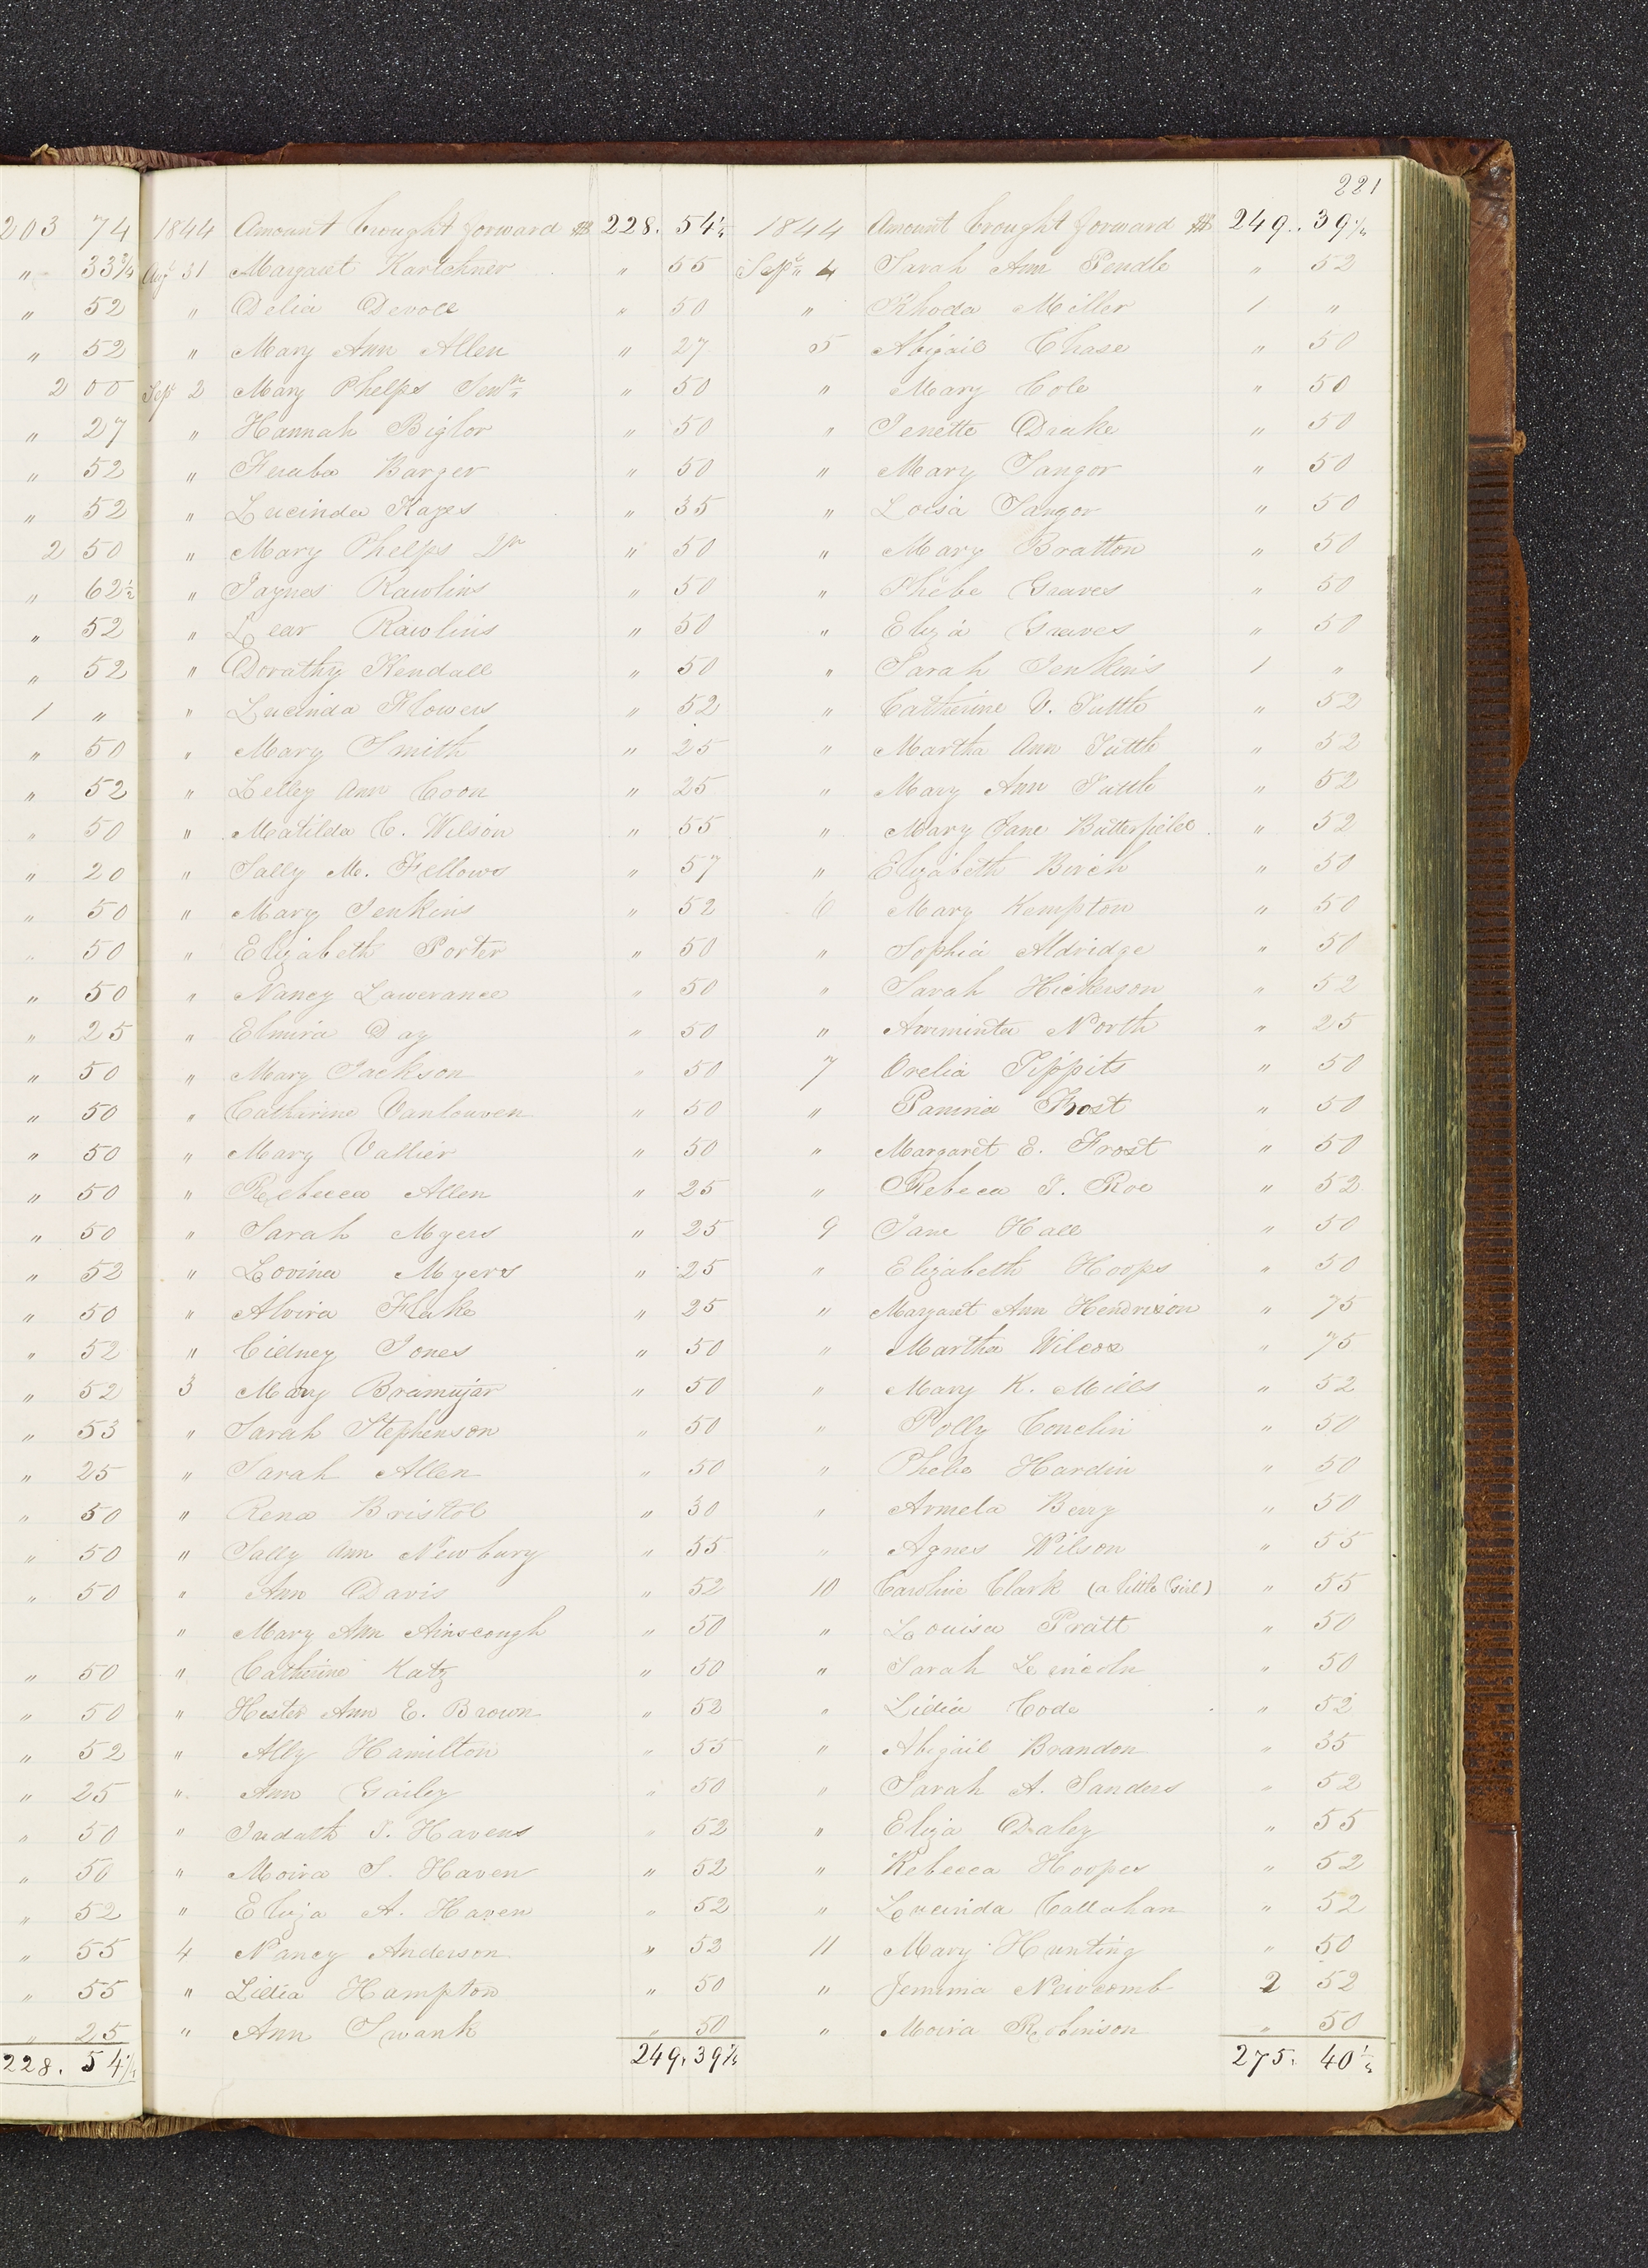 221
203 74
" 33 3/4
" 52
" 52
2 00
" 27
" 52
" 52
2 50
" 62 1/2
" 52
" 52
1 "
" 50
" 52
" 50
" 20
" 50
" 50
" 50
" 25
" 50
" 50
" 50
" 50
" 50
" 52
" 50
" 52
" 52
" 53
" 25
" 50
" 50
" 50
" 50
" 50
" 52
" 25
" 50
" 50
" 52
" 55
" 55
" 25
228. 54 1/4
1844 Amount brought forward $ 228. 54 1/4
Augt 31 Margaret Kartchner " 55
" Delia Devoll " 50
" Mary Ann Allen " 27
Sept 2 Mary Phelps Senr " 50
" Hannah Bigler " 50
" Barger " 50
" Lucinda Kayes " 35
" Mary Phelps Jr " 50
" Jaynes Rawlins " 50
" Lear Rawlins " 50
" Dorathy Kendall " 50
" Lucinda Flowers " 52
" Mary Smith " 25
" Lelley Ann Coon " 25
" Matilda C. Wilson " 55
" Sally M. Fellows " 57
" Mary Jenkins " 52
" Elizabeth Porter " 50
" Nancy Lawerance " 50
" Elmira Day " 50
" Mary Jackson " 50
" Catharine Vanlouven " 50
" Mary Vallier " 50
" Rebecca Allen " 25
" Sarah Myers " 25
" Lovina Myers " 25
" Alvira Flake " 25
" Cidney Jones " 50
3 Mary Bramujar " 50
" Sarah Stephenson " 50
" Sarah Allen " 50
" Rena Bristol " 30
" Sally Ann Newbury " 55
" Ann Davis " 52
" Mary Ann Ainscough " 50
" Catherine Katz " 50
" Hester Ann E. Brown " 52
" Ally Hamilton " 55
" Ann Gailey " 50
" Judath T. Havens " 52
" Moira S. Haven " 52
" Eliza A. Haven " 52
4 Nancy Anderson " 52
" Lidia Hampton " 50
" Ann Swank " 50
249. 39 1/4
1844 Amount brought forward $ 249. 39 1/4
Septr 4 Sarah Ann Pendle " 52
" Rhoda Miller 1 "
5 Abigail Chase " 50
" Mary Cole " 50
" Jenette Drake " 50
" Mary Sangor " 50
" Loisa Sangor " 50
" Mary Bratton " 50
" Phebe Graves " 50
" Eliza Graves " 50
" Sarah Jenkins 1 "
" Catherine V. Tuttle " 52
" Martha Ann Tuttle " 52
" Mary Ann Tuttle " 52
" Mary Jane Butterfield " 52
" Elizabeth Birch " 50
6 Mary Kempton " 50
" Sophia Aldridge " 50
" Sarah Hickerson " 52
" Arminta North " 25
7 Orelia Tippits " 50
" Pamria Frost " 50
" Margaret E. Frost " 50
" Rebeca J. Roe " 52
9 Jane Hall " 50
" Elizabeth Hoops " 50
" Margaret Ann Hendrixon " 75
" Martha Wilcox " 75
" Mary K. Mills " 52
" Polly Conclin " 50
" Phebe Hardin " 50
" Armela Berry " 50
" Agnes Wilson " 55
10 Caroline Clark (a little Girl) " 55
" Louisa Pratt " 50
" Sarah Lincoln " 50
" Lidia Code " 52
" Abigail Brandon " 35
" Sarah A. Sanders " 52
" Eliza Daley " 55
" Rebecca Hoopes " 52
" Lucinda Callahan " 52
11 Mary Hunting " 50
" Jemima Newcomb 2 52
" Moira Robinson " 50
275. 40 1/4